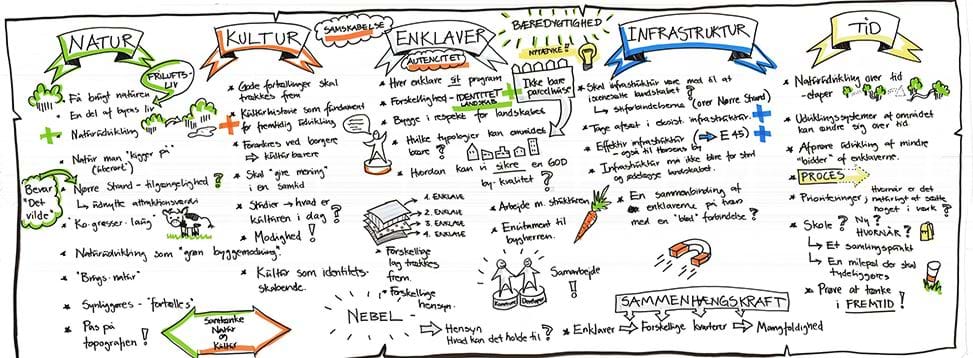 NATUR
FRILUFTS-
LIV
* Få brugt naturen
En del af byens liv
+ Naturudvikling
* Natur man "kigger på"
(itererat)
* Nørre Strand - tilgængelighed ?
↳ udnytte attraktionsværdi
Bevar
"Det
vilde"
* Ko-græsser-laug
* Naturudvikling som "grøn byggemodning"
* "Brugs-natur"
* Synliggøres - "fortælles"
* Pas på
topografien !
Samtænke
Natur
og
Kultur
KULTUR
SAMSKABELSE
* Gode fortællinger skal
trækkes frem
* Kulturhistorie som fundament
for fremtidig udvikling
* Forankres ved borgere
→ kulturbærere
* Skal "give mening"
i en samtid
* Studier → hvad er
kulturen i dag ?
* Modighed !
* Kultur som identitets-
skabende.
ENKLAVER
AUTENCITET
* Hver enklave sit program
* Forskellighed - IDENTITET
LANDSKAB
* Bygge i respekt for landskabet
* Hvilke typologier kan området
bære ?
* Hvordan kan vi sikre en GOD
by-kvalitet ?
1. ENKLAVE
2. ENKLAVE
3. ENKLAVE
4. ENKLAVE
* Forskellige
lag trækkes
frem.
* Forskellige
hensyn.
NEBEL
⇒ Hensyn
Hvad kan det holde til ?
* Arbejde m. strukturen
* Incitament til
bygherren.
Samarbejde
!
Kommune
Developer
BÆREDYGTIGHED
NYTÆNKE!!
Ikke bare
parcelhuse
INFRASTRUKTUR
* Skal infrastruktur være med til at
iscenesætte landskabet ?
↳ Stiforbindelserne (over Nørre Strand)
* Tage afsæt i eksist. infrastruktur.
* Effektiv infrastruktur (⇒ E45)
- også til Horsens by
* Infrastruktur må ikke blive for stor
og ødelægge landskabet.
* En sammenbinding af
enklaverne på tværs
med en "blød" forbindelse ?
SAMMENHÆNGSKRAFT
* Enklaver ⇒ Forskellige karakterer ⇒ Mangfoldighed
TID
* Naturudvikling over tid
-etaper
* Udviklingssystemer af området
kan ændre sig over tid
* Afprøve udvikling af mindre
"bidder" af enklaverne.
* PROCES
* Prioriteringer, hvornår er det
naturligt at sætte
noget i værk ?
* Skole ? Ny ?
HVORNÅR ?
↳ Et samlingspunkt
↳ En milepæl der skal
tydeliggøres
* Prøve at tænke
i FREMTID !